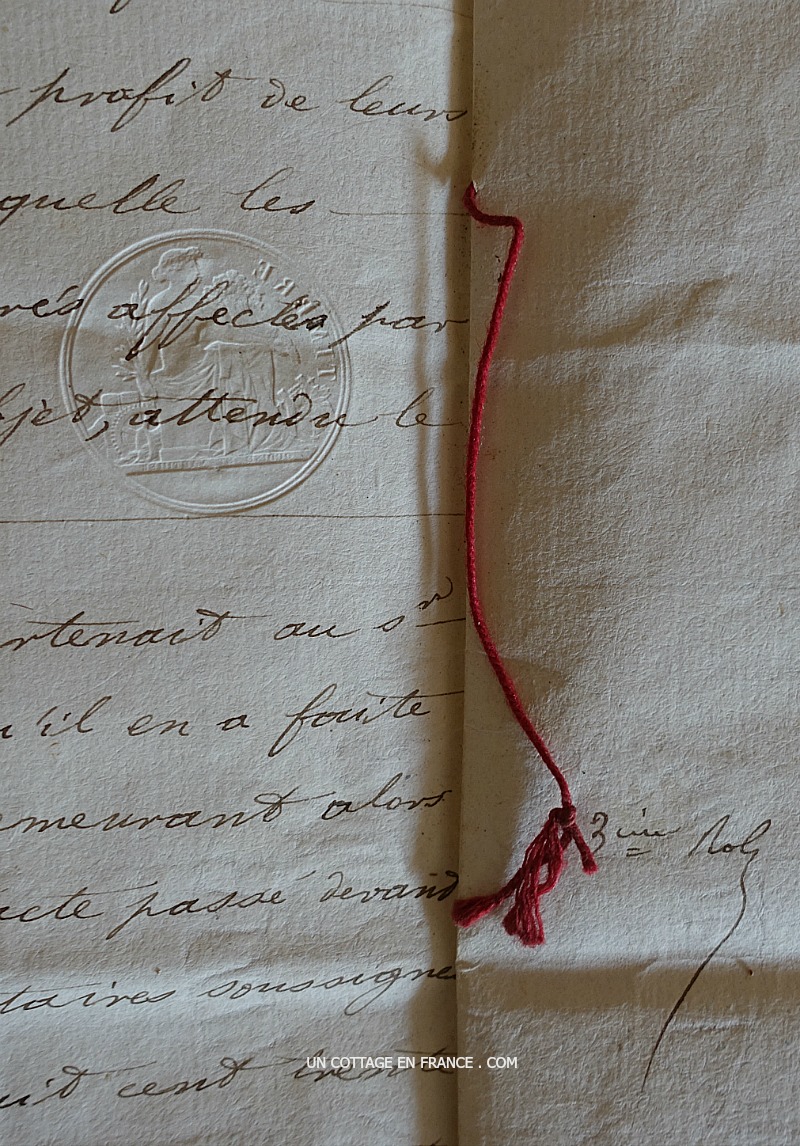 profit de leurs
quelle les
rés affectés par
bjet, attendu le
rtenait au sr
u'il en a faite
emeurant alors
acte passé devant
taires soussigné
uit cent trente
3ème Rol
UN COTTAGE EN FRANCE . COM